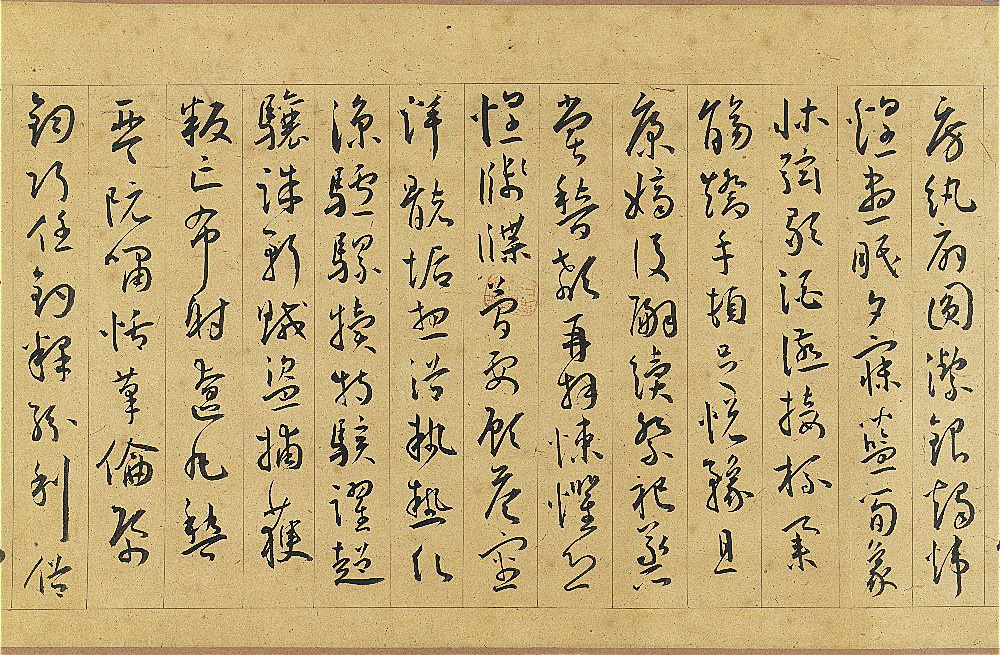 房紈扇圓潔銀燭煒
煌晝眠夕寐藍筍象
床弦歌酒讌接杯舉
觴矯手頓足悅豫且
康嫡後嗣續祭祀蒸
嘗稽顙再拜悚懼恐
惶牋牒簡要顧答審
詳骸垢想浴執熱願
涼驢騾犢特駭躍超
驤誅斬賊盜捕獲
叛亡布射遼丸嵇
琴阮嘯恬筆倫紙
鈞巧任釣釋紛利俗